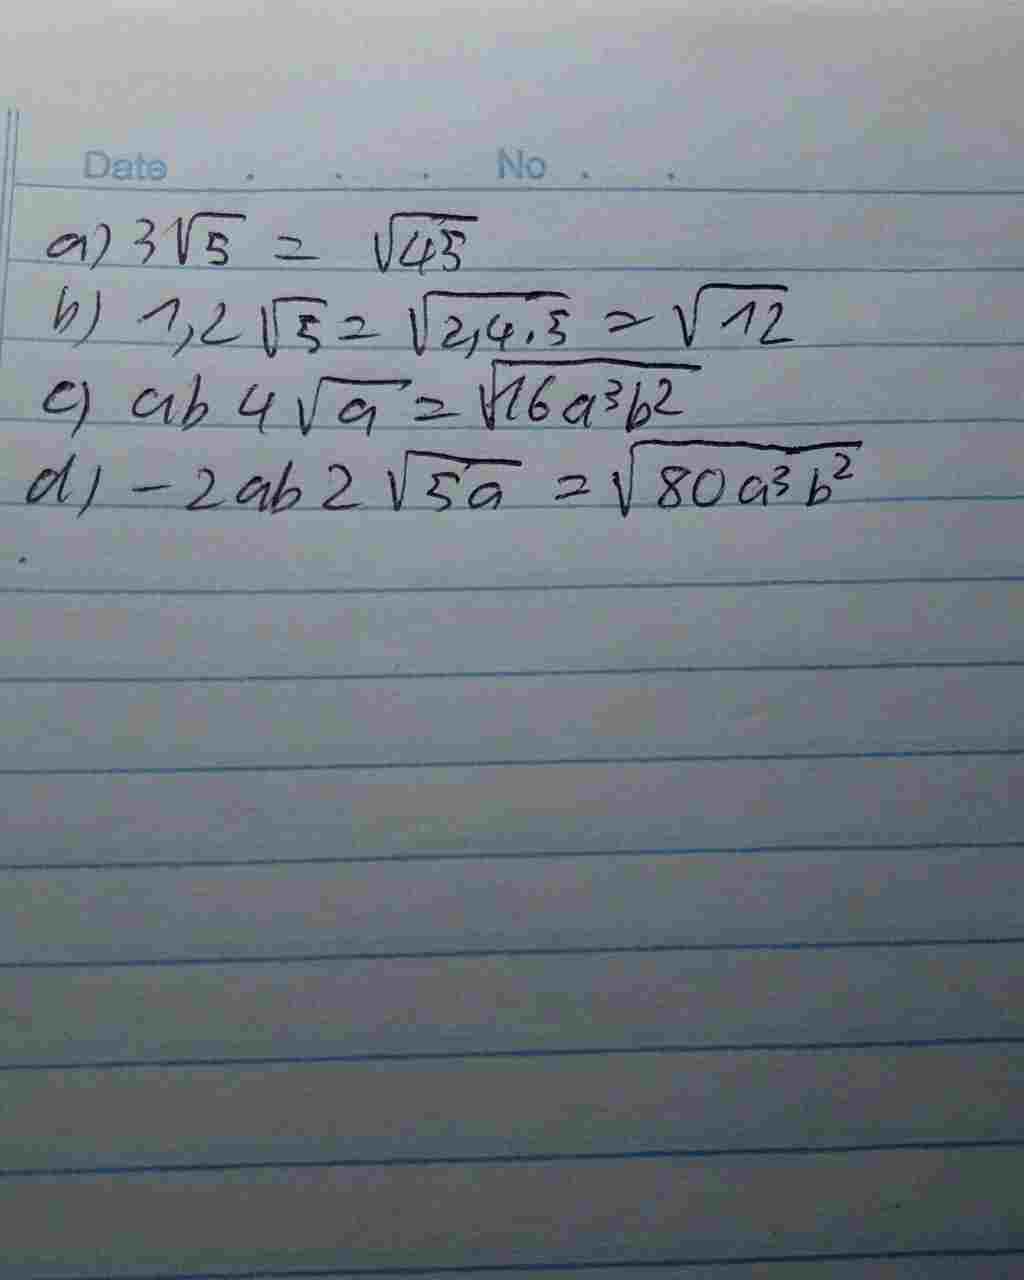 Date . . . No . .
a) 3√5 = √45
b) 1,2√5 = √2,4.5 = √12
c) ab 4√a = √16a³b²
d) -2ab2√5a = √80a³b²